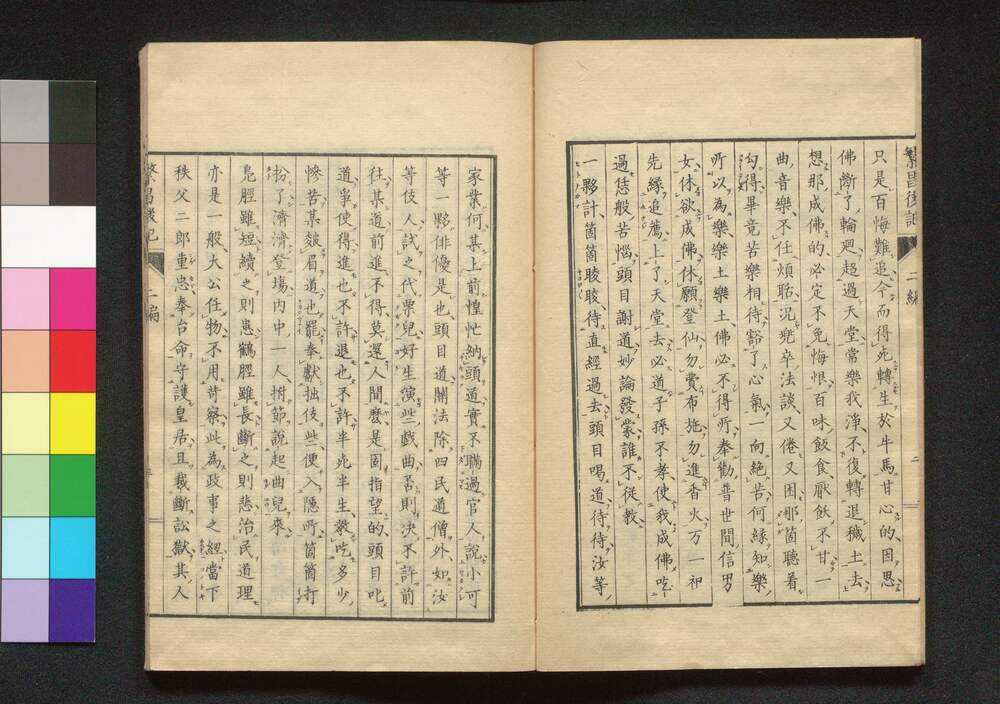 繁昌後記 二編 二
只是百悔難追今而得死轉生於牛馬甘心的因思
佛斷了輪廻超過天堂常樂我淨不復轉退穢土去
想那成佛的必定不免悔恨百味飯食厭飫不甘一
曲音樂不任煩聒況兜卒法談又倦又困那箇聽着
勾得畢竟苦樂相待豁了心氣一向絶苦何緣知樂
所以為樂樂土樂土佛必不得所奉勸普世間信男
女休欲成佛休願登仙勿費布施勿進香火万一祖
先緣追薦上了天堂去必道子孫不孝使我成佛吃
過恁般苦惱頭目謝道妙論發蒙誰不從教
一夥計箇箇睃睃待直經過去頭目喝道待待汝等
家業何某上前惶忙納頭道實不瞞過官人說小可
等一夥俳優是也頭目道關法除四民道僧外如汝
等伎人試之代票兒好生演些戲曲否則決不許前
往某道前進不得莫還人間麽是固指望的頭目叱
道爭使得進也不許退也不許半死半生教吃多少
慘苦某皺眉道也罷奉獻拙伎些便入隱所箇箇打
扮了濟濟登塲內中一人拊節說起曲兒來
鳧脛雖短續之則患鶴脛雖長斷之則悲治民道理
亦是一般大公任物不用苛察此為政事之經當下
秩父二郎重忠奉台命守護皇居且裁斷訟獄其人
繁昌後記 二編 三